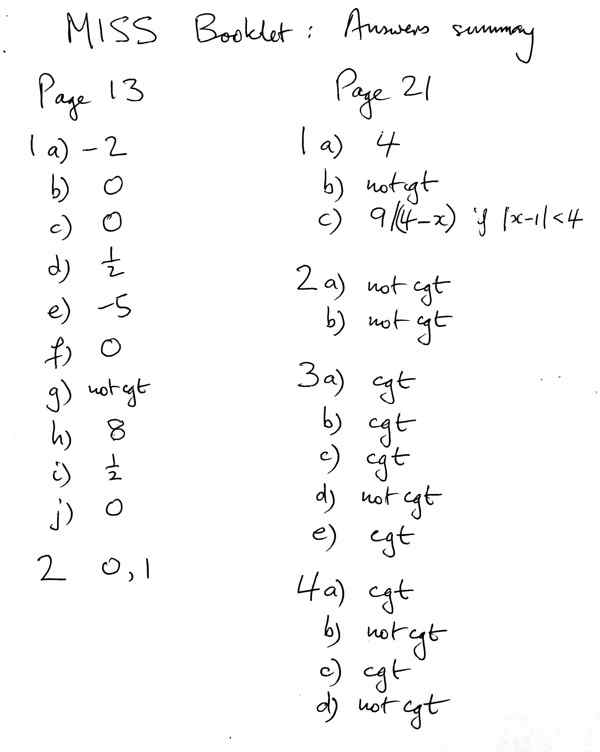 MISS Booklet: Answers summary
Page 13
1 a) -2
b) 0
c) 0
d) 1/2
e) -5
f) 0
g) not cgt
h) 8
i) 1/2
j) 0
2 0, 1
Page 21
1 a) 4
b) not cgt
c) 9/(4-x) if |x-1|<4
2 a) not cgt
b) not cgt
3 a) cgt
b) cgt
c) cgt
d) not cgt
e) cgt
4 a) cgt
b) not cgt
c) cgt
d) not cgt